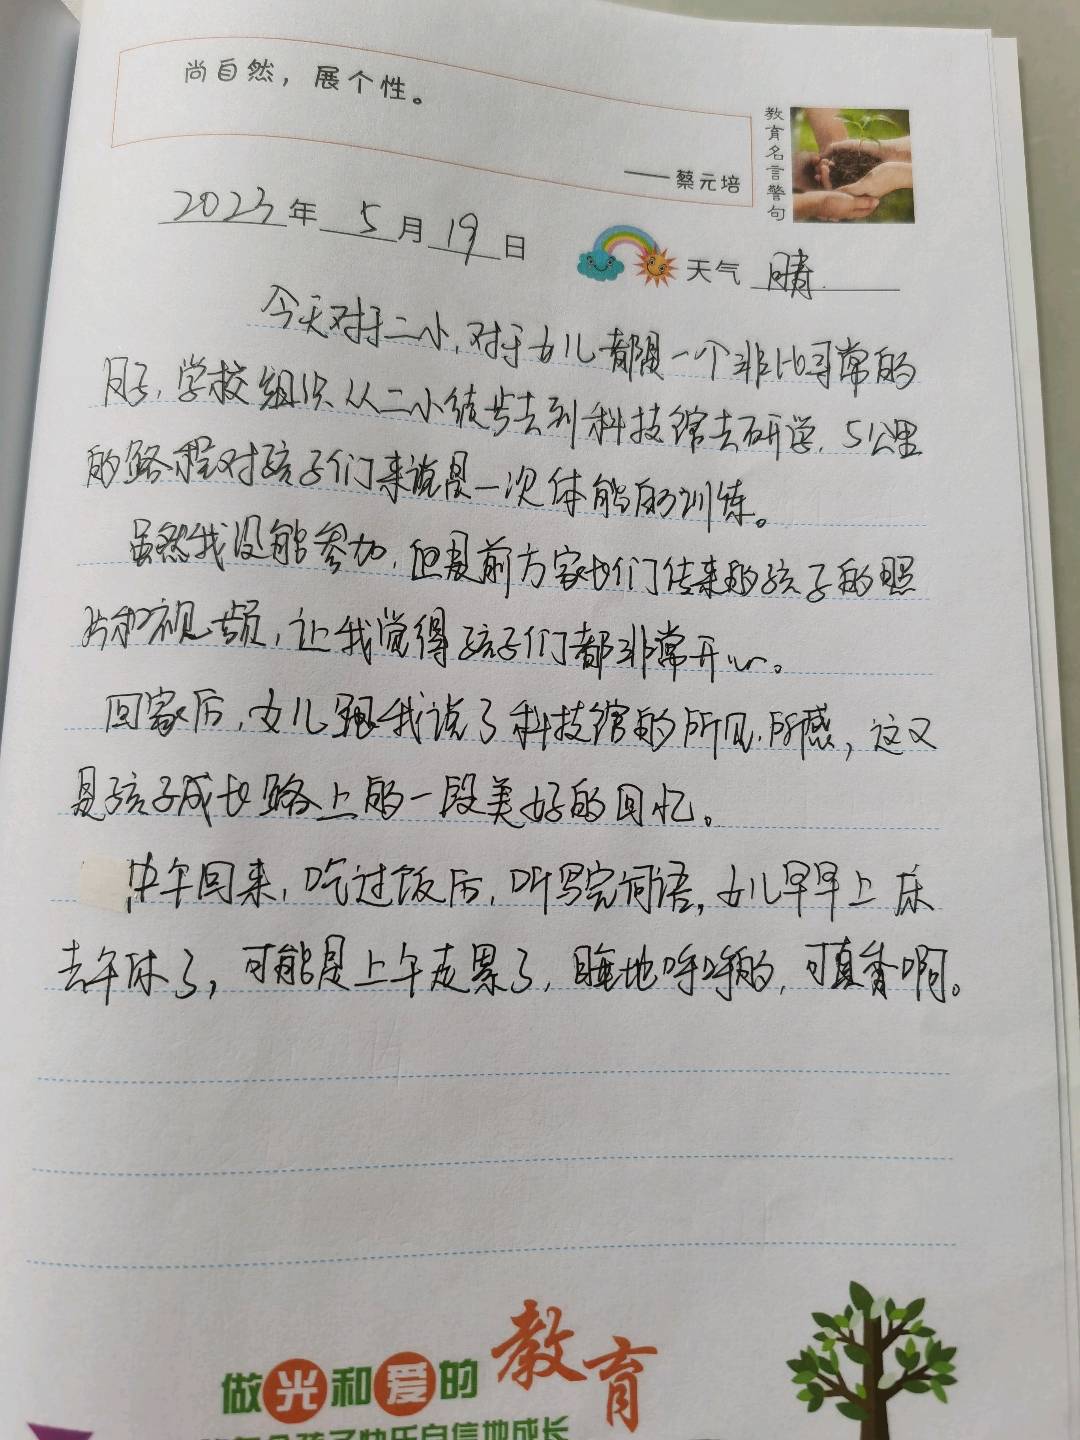 尚自然，展个性。
——蔡元培
教育名言警句
2023年 5月19日
天气 晴
今天对于二小，对于女儿都是一个非比寻常的
日子，学校组织从二小徒步去到科技馆去研学，5公里
的路程对孩子们来说是一次体能的训练。
虽然我没能参加，但是前方家长们传来的孩子的照
片和视频，让我觉得孩子们都非常开心。
回家后，女儿跟我说了科技馆的所见.所感，这又
是孩子成长路上的一段美好的回忆。
中午回来，吃过饭后，听写完词语，女儿早早上床
去午休了，可能是上午走累了，睡地呼呼的，可真香啊。
做光和爱的教育
孩子快乐自信地成长